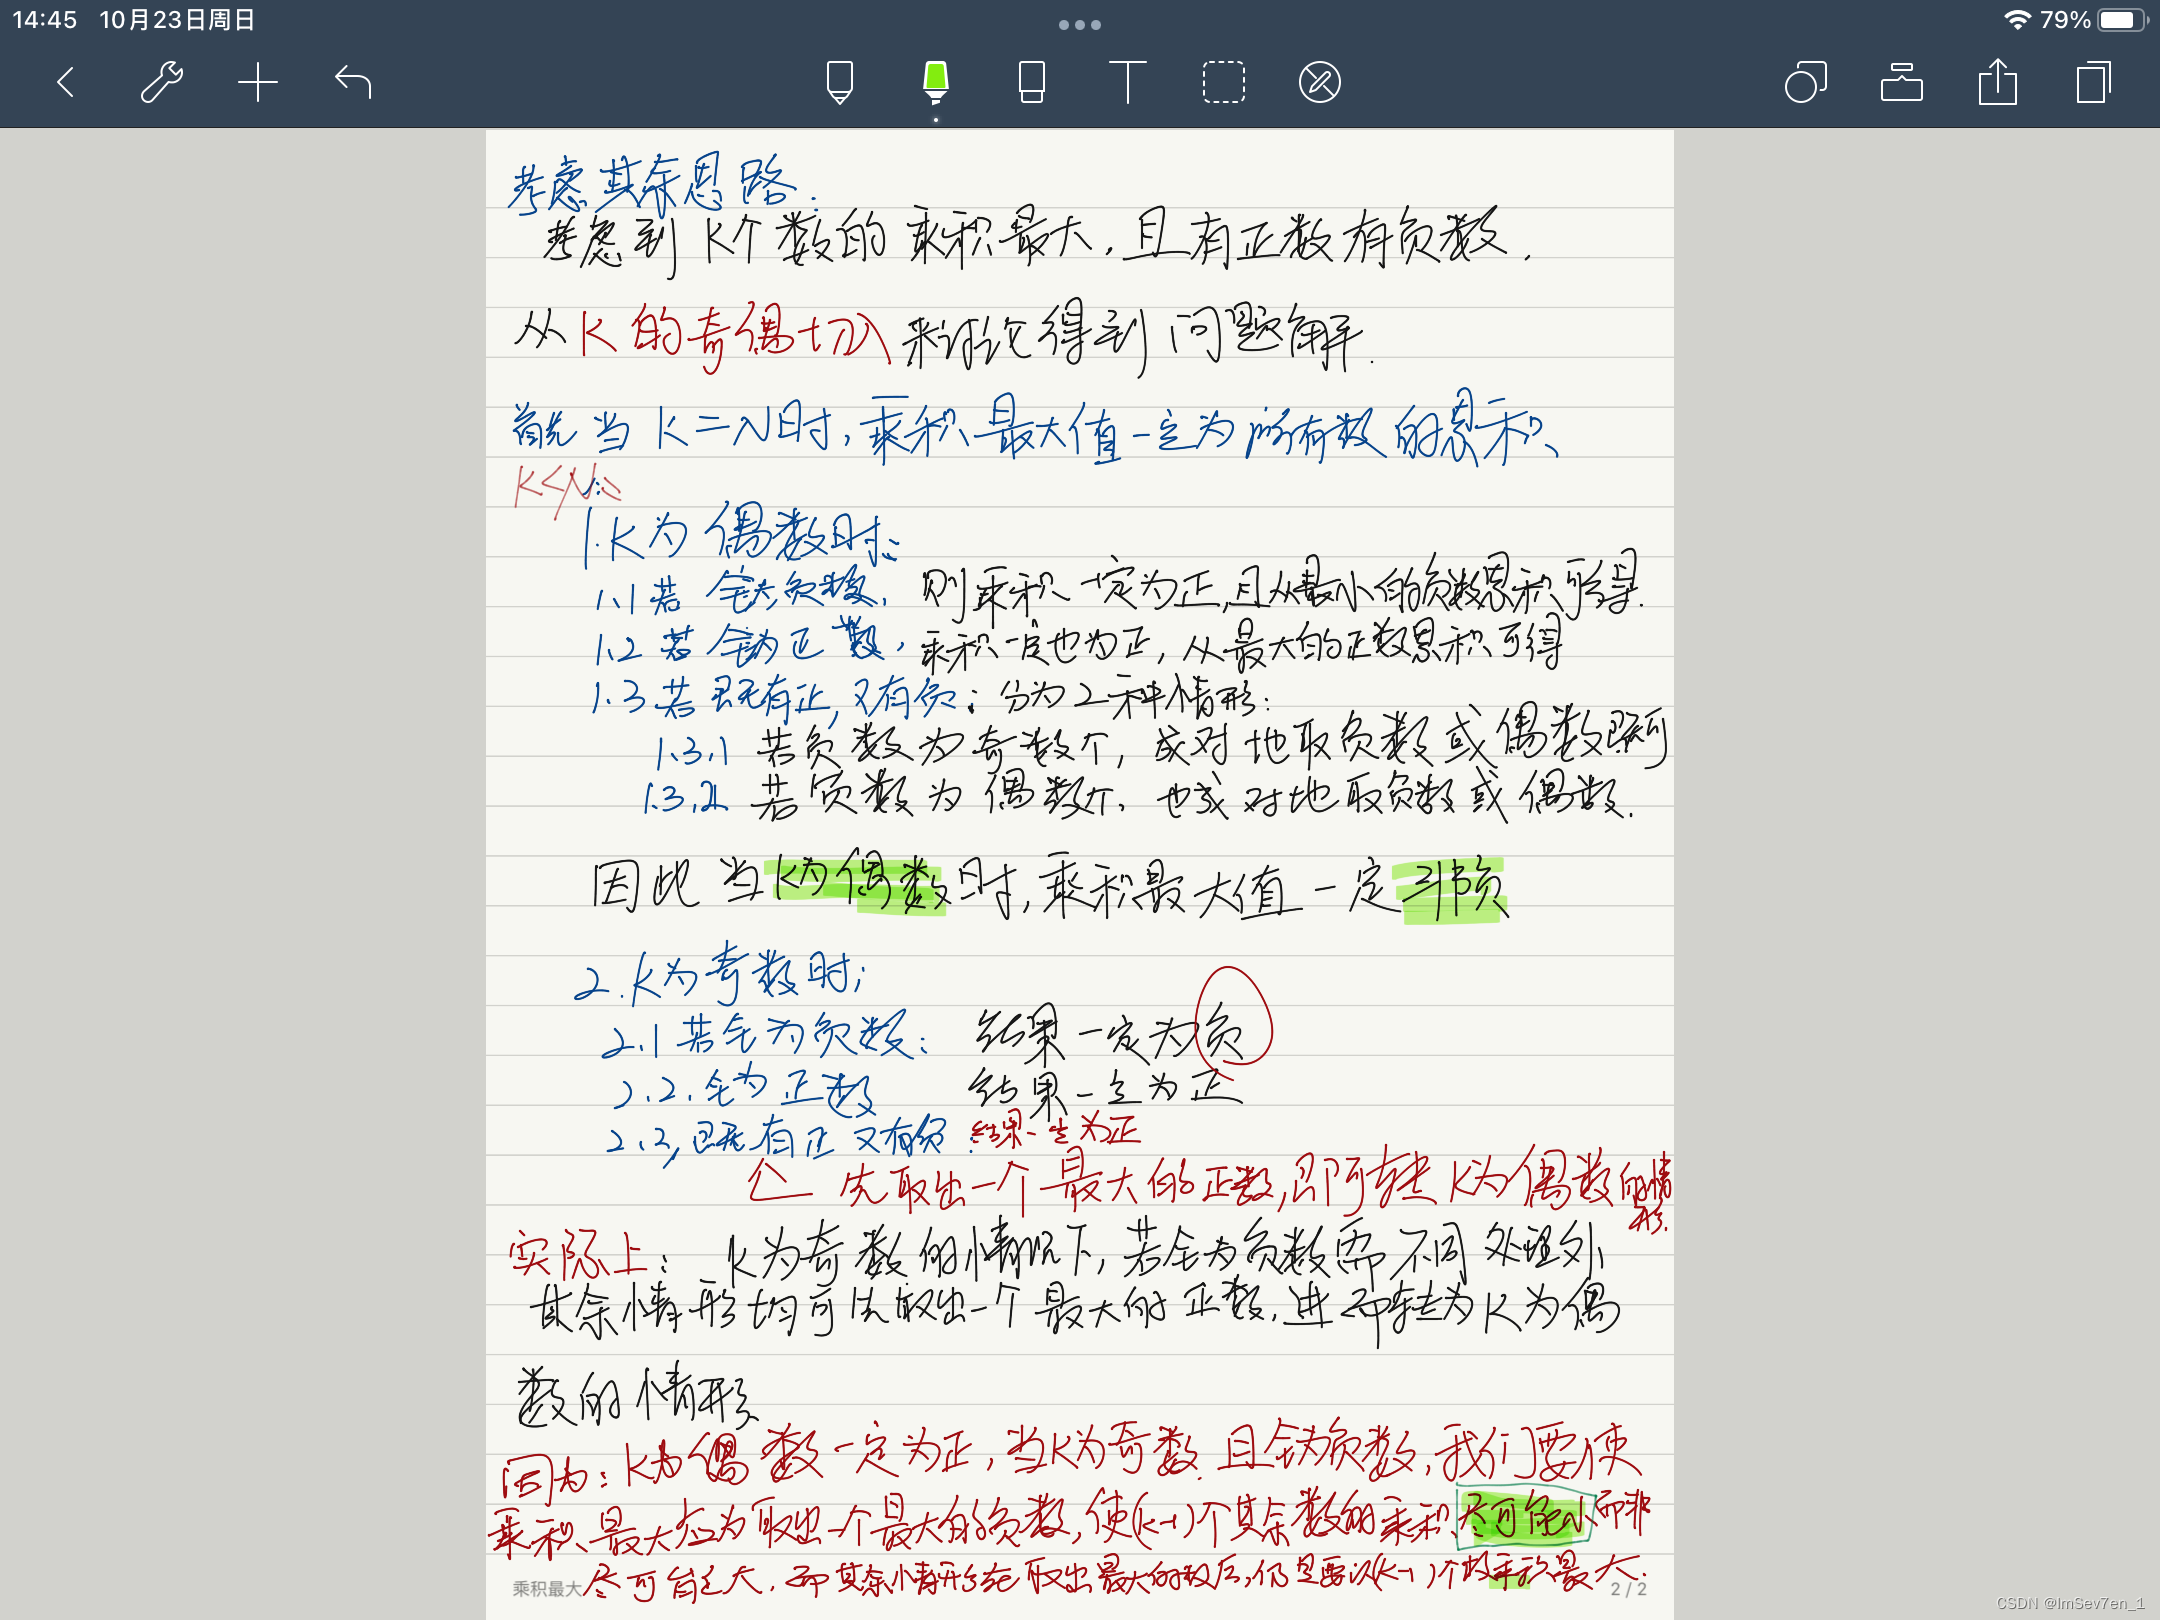 14:45 10月23日周日
79%
考虑其余思路.
考虑到 K个数的乘积最大,且有正数有负数.
从K的奇偶切入来讨论得到问题解.
首先当 K=N时,乘积最大值一定为所有数的累积.
K<N:
1.K为偶数时:
1.1若全为负数,则乘积一定为正,且从最小的负数累积可得.
1.2 若全为正数,乘积一定也为正,从最大的正数累积可得
1.3若既有正,又有负:分为2种情形:
1.3.1 若负数为奇数个,成对地取负数或偶数既可
1.3.2 若负数为偶数个,也成对地取负数或偶数.
因此当K为偶数时,乘积最大值一定非负
2.K为奇数时:
2.1若全为负数: 结果一定为负
2.2.全为正数 结果一定为正
2.3,既有正又有负:结果一定为正
先取出一个最大的正数,即可转 K为偶数的情形.
实际上: K为奇数的情况下,若全为负数需不同处理外
其余情形均可先取出一个最大的正数,进而转为K为偶
数的情形
因为:K为偶数一定为正,当K为奇数且全为负数,我们要使
乘积最大应为取出一个最大的负数,使(K-1)个其余数的乘积尽可能小而非
尽可能大.而其余情形在取出最大的数后,仍是要以(K-1)个数乘积最大.
乘积最大
2 / 2
CSDN @ImSev7en_1